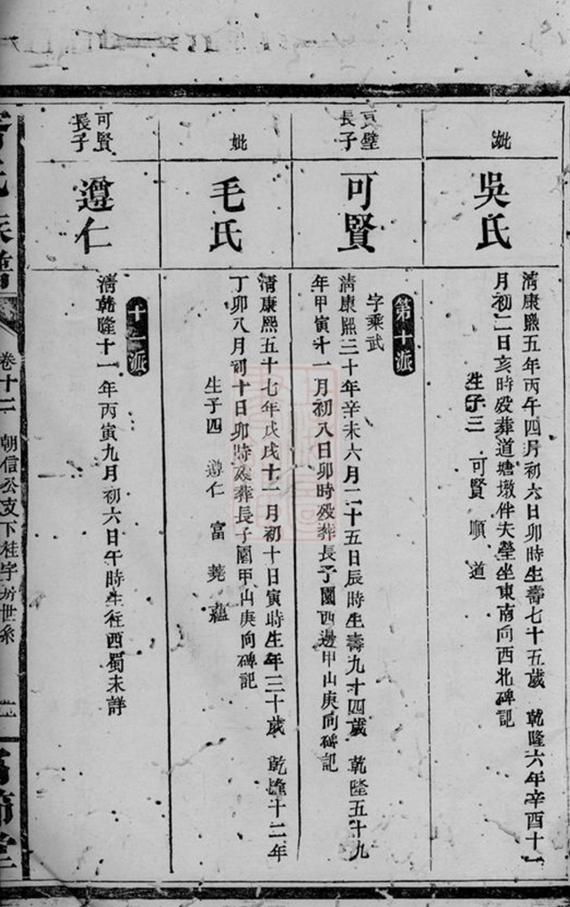 妣
吳氏
清康熙五年丙午四月初六日卯時生壽七十五歲 乾隆六年辛酉十一
月初二日亥時歿葬道塘墩伴夫塋坐東南向西北碑記
生子三 可賢 順 道
長子
可賢
第十派
字乘武
清康熙三十年辛未六月二十五日辰時生壽九十四歲 乾隆五十九
年甲寅十一月初八日卯時歿葬長子園西邊甲山庚向碑記
妣
毛氏
清康熙五十七年戊戌十二月初十日寅時生年三十歲 乾隆十二年
丁卯八月初十日卯時歿葬長子園甲山庚向碑記
生子四 遵仁 富 蘊
可賢
長子
遵仁
十一派
清乾隆十一年丙寅九月初六日午時生往西蜀未詳
氏族譜
卷十二 朝信公支下桂字房世系